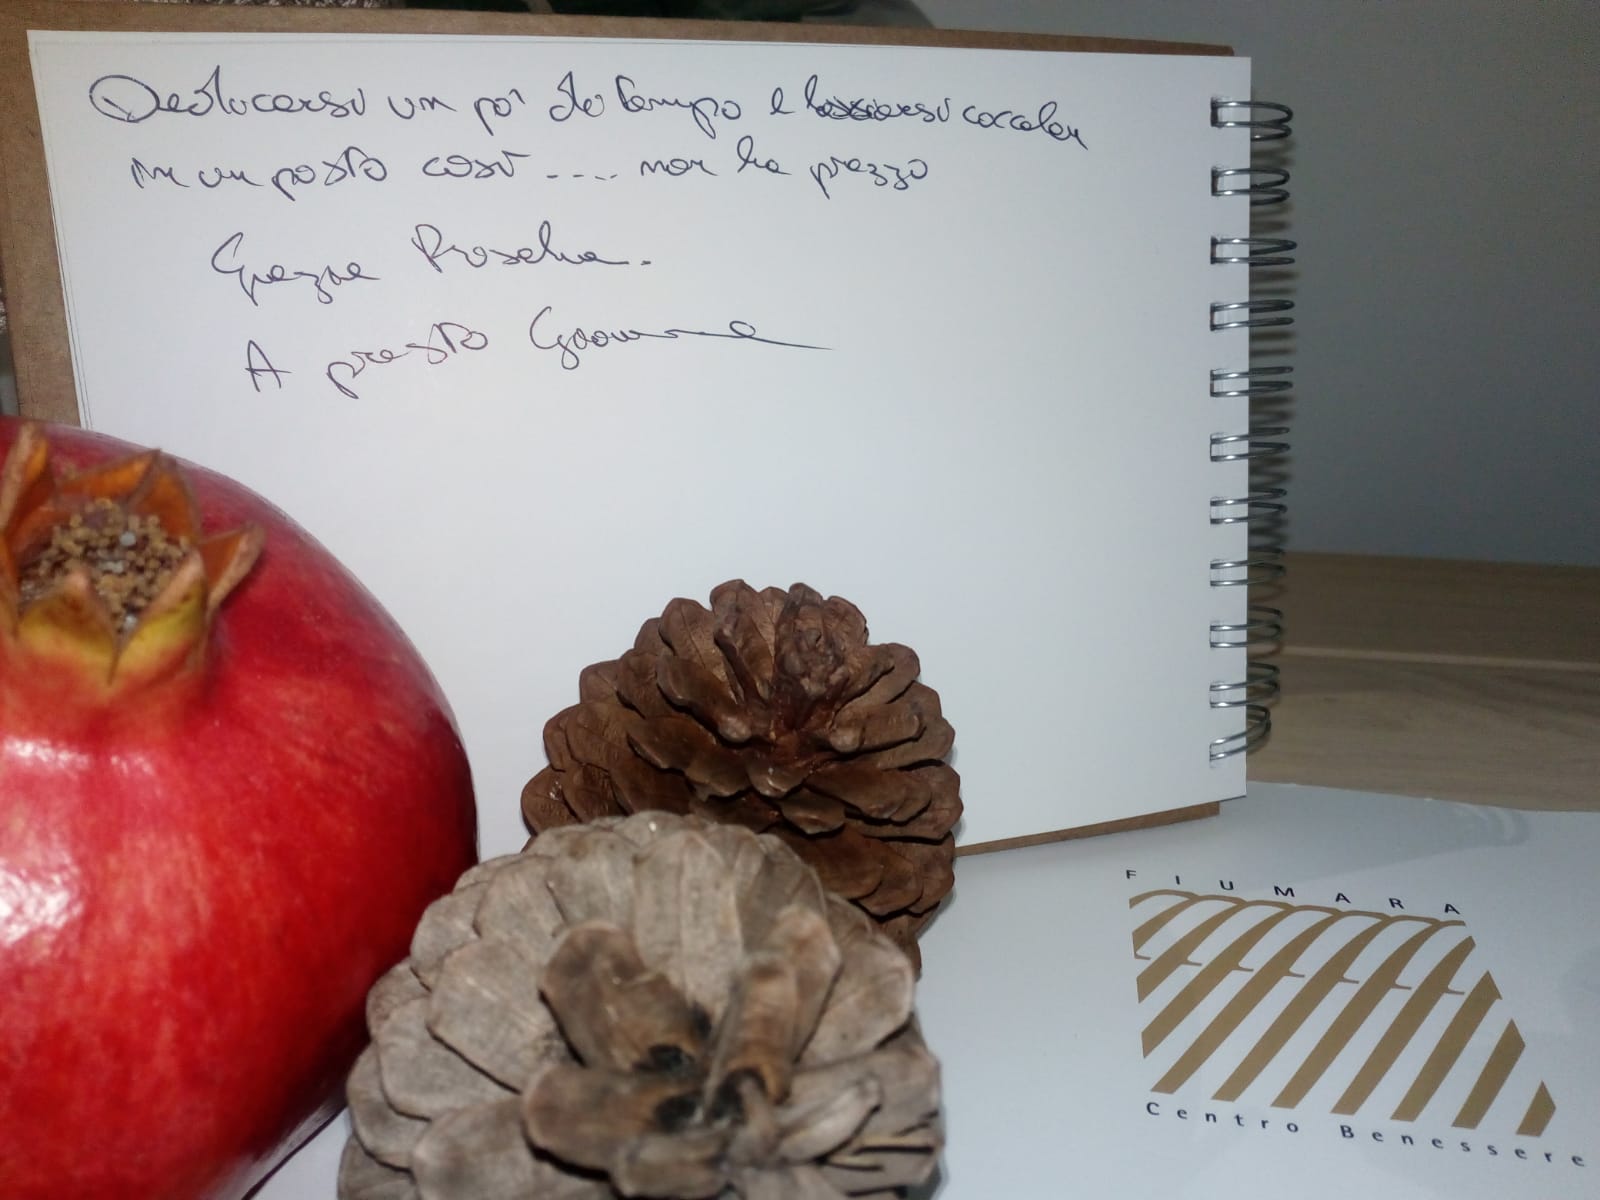 Dedicarsi un po' di tempo e lasciarsi coccolare
in un posto così .... non ha prezzo
Grazie Rosalia.
A presto Giovanna
FIUMARA
Centro Benessere